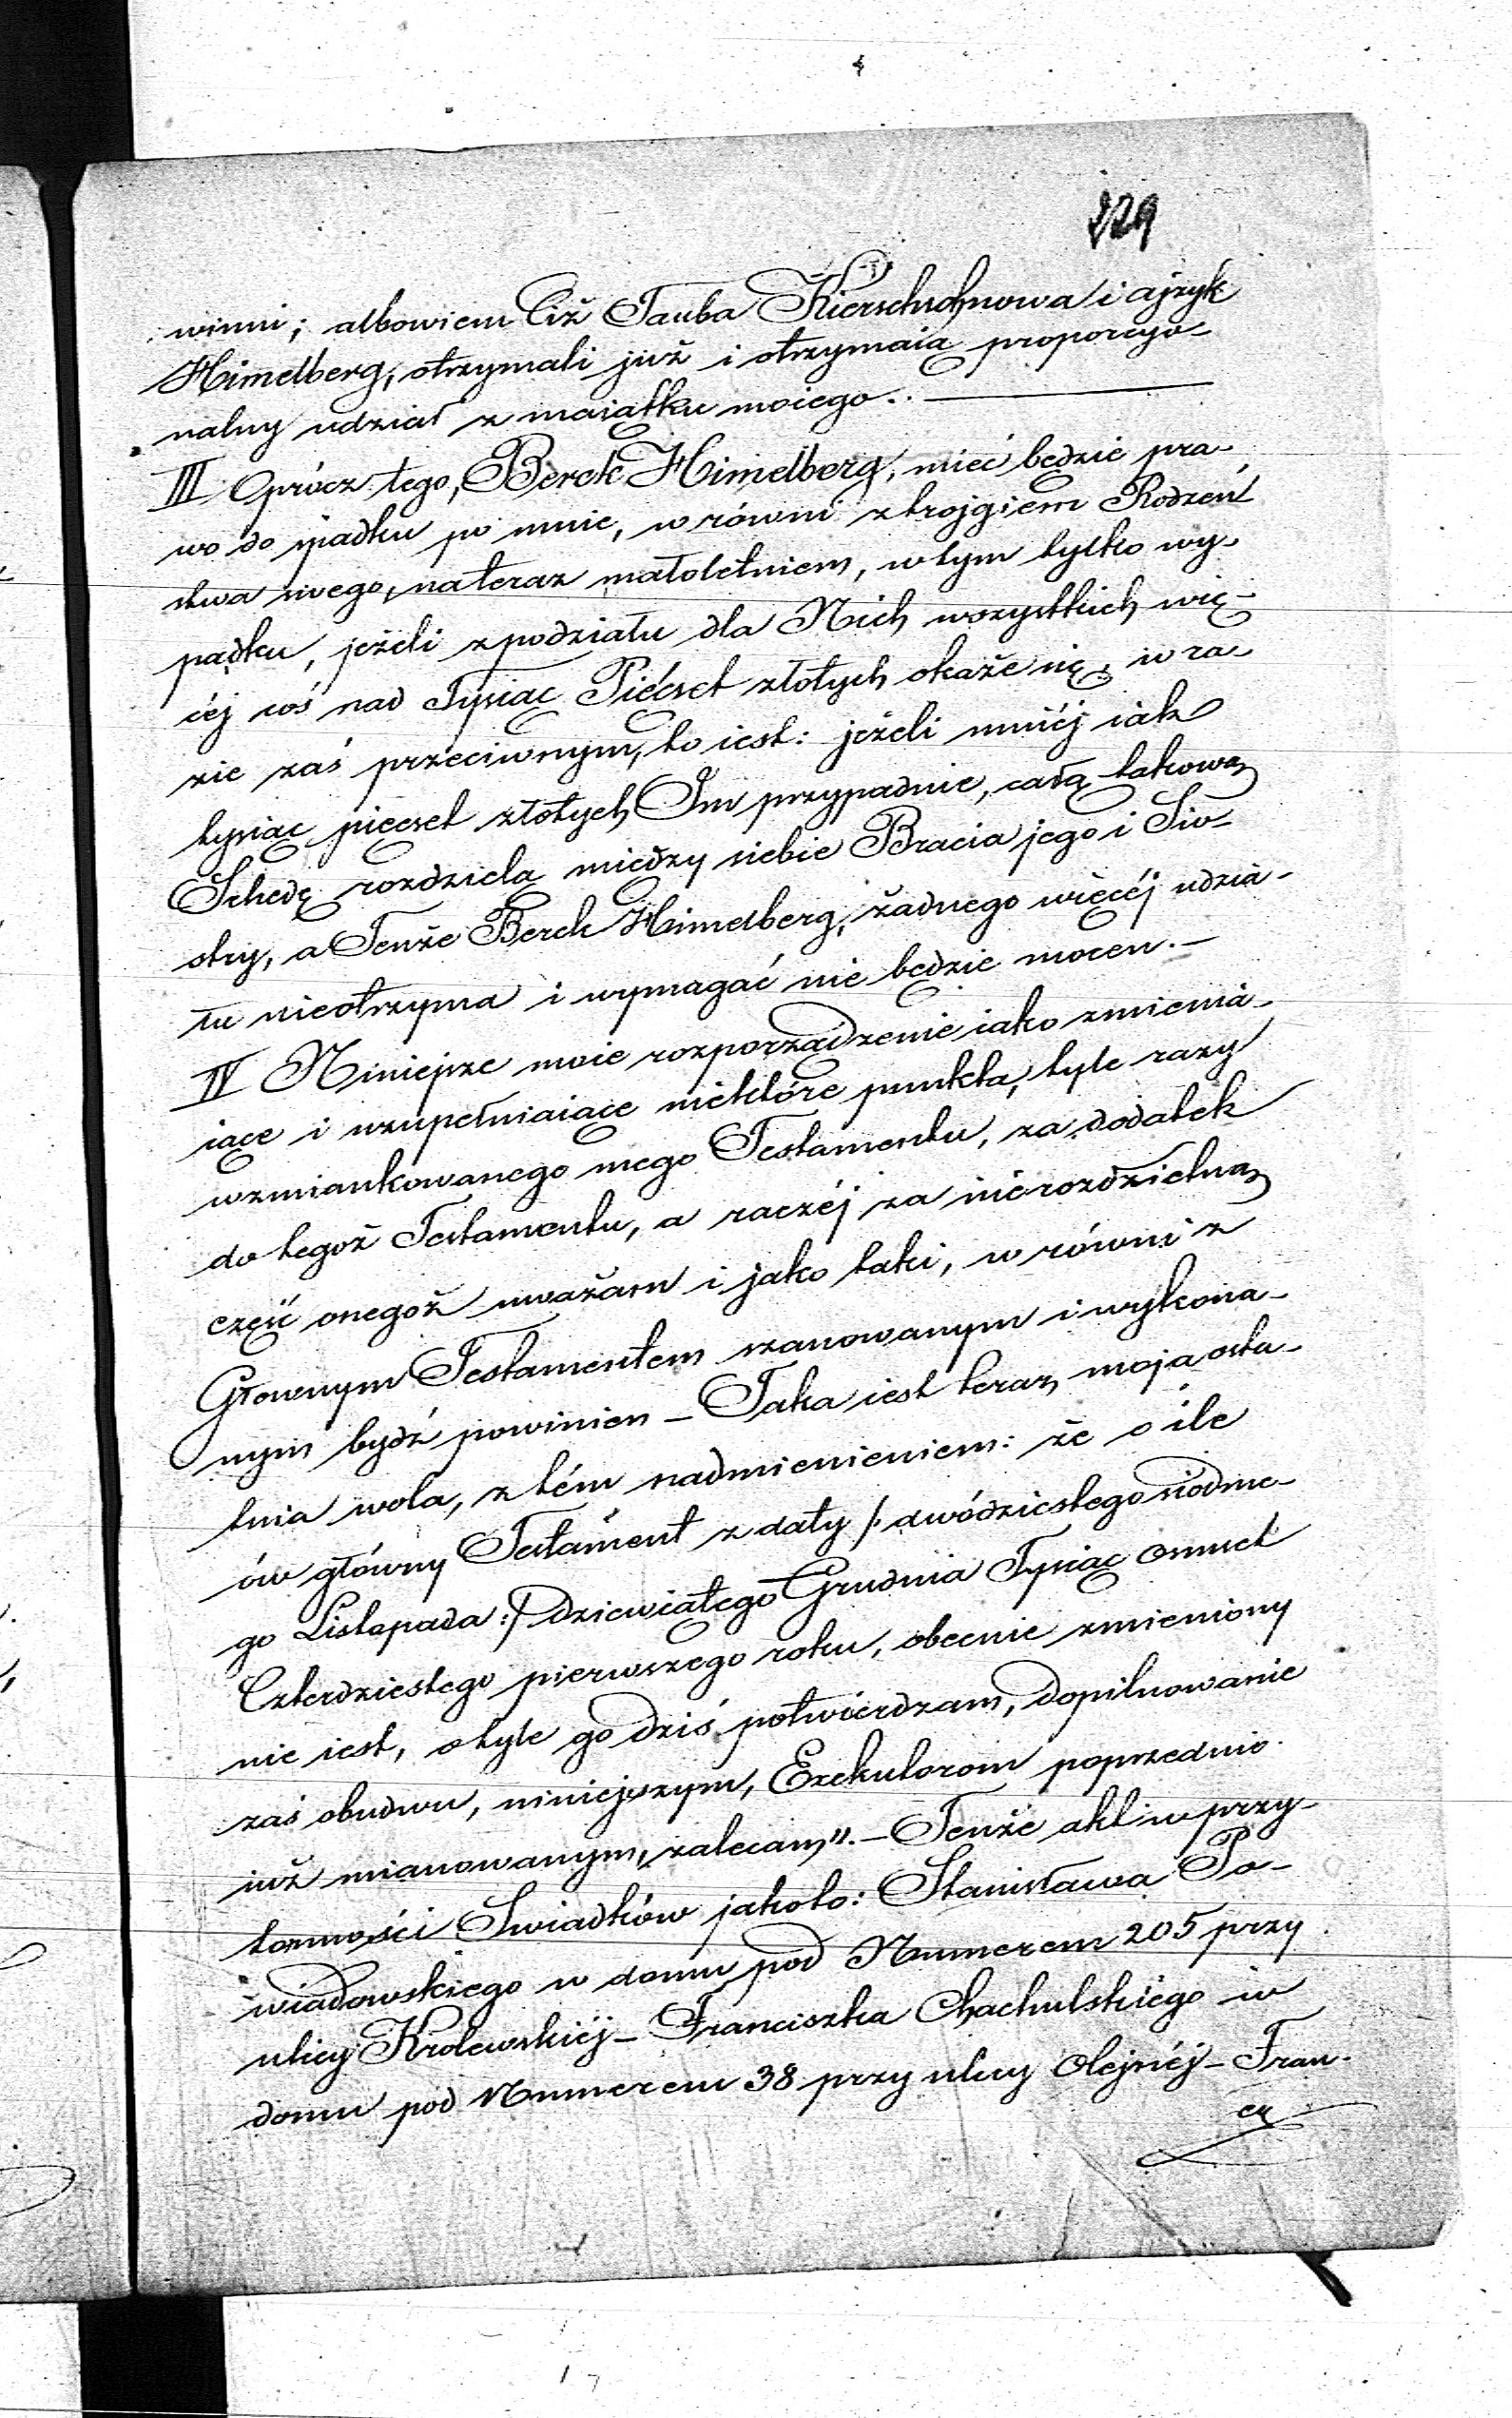 229
winni; albowiem Ciż Tauba Kierschsohnowa i ajzyk
Himelberg, otrzymali już i otrzymaią proporcyo-
nalny udział z maiątku moiego. . —
III Oprócz tego, Berek Himelberg, mieć będzie pra-
wo do spadku po mnie, w równi z trojgiem Rodzeń
stwa swego, nateraz małoletniem, w tym tylko wy-
padku, jeżeli z podziału dla Nich wszystkich wię-
céj coś nad Tysiąc Pięćset złotych okaże się, w ra-
zie zaś przeciwnym, to iest: jeżeli mniéj iak
tysiąc pięcset złotych Im przypadnie, całą takową
Schedę rozdzielą między siebie Bracia jego i Sio-
stry, a Tenże Berek Himelberg, żadnego więcéj udzia-
łu nieotrzyma i wymagać nie będzie mocen. —
IV Niniejsze moie rozporządzenie iako zmienia-
iące i uzupełniaiące niektóre punkta, tyle razy
wzmiankowanego mego Testamentu, za dodatek
do tegoż Testamentu, a raczéj za nierozdzielną
część onegoż uważam i jako taki, w równi z
Głownym Testamentem szanowanym i wykona-
nym bydź powinien — Taka iest teraz moja osta-
tnia wola, z tém nadmienieniem: że o ile
ów główny Testament z daty /: dwódziestego siódme-
go Listopada :/ dziewiątego Grudnia Tysiąc osmset
Czterdziestego pierwszego roku, obecnie zmieniony
nie iest, o tyle go dziś potwierdzam, dopilnowanie
zaś obudwu, niniejszym, Exekutorom poprzednio
iuż mianowanym, zalecam". — Tenże akt w przy-
tomności Swiadków jakoto: Stanisława Po-
wiadowskiego w domu pod Numerem 205 przy
ulicy Krolewskiéj — Franciszka Chachulskiego w
domu pod Numerem 38 przy ulicy Olejnéj — Fran-